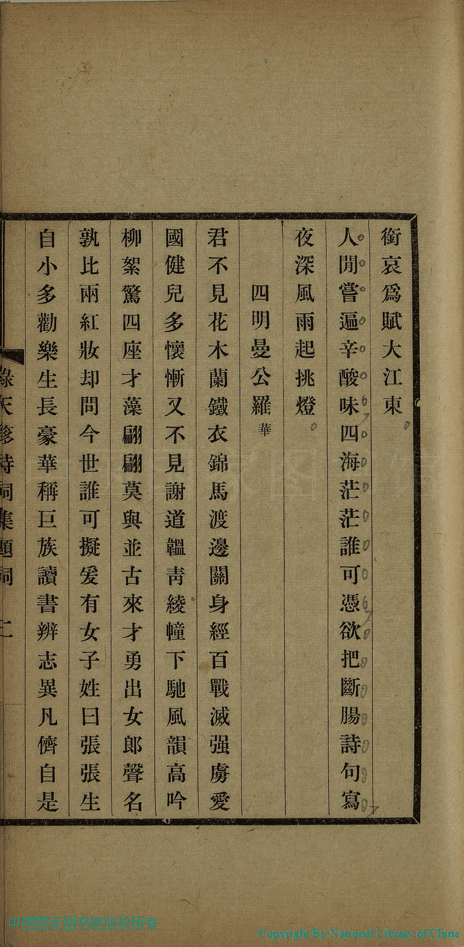 銜哀爲賦大江東
人閒嘗遍辛酸味四海茫茫誰可憑欲把斷腸詩句寫
夜深風雨起挑燈
四明曼公羅華
君不見花木蘭鐵衣錦馬渡邊關身經百戰滅强虜愛
國健兒多懷慚又不見謝道韞靑綾幛下馳風韻高吟
柳絮驚四座才藻翩翩莫與並古來才勇出女郎聲名
孰比兩紅妝却問今世誰可擬爰有女子姓曰張張生
自小多勸樂生長豪華稱巨族讀書辨志異凡儕自是
天 詩詞集題詞 二
Copyright By National Library of China